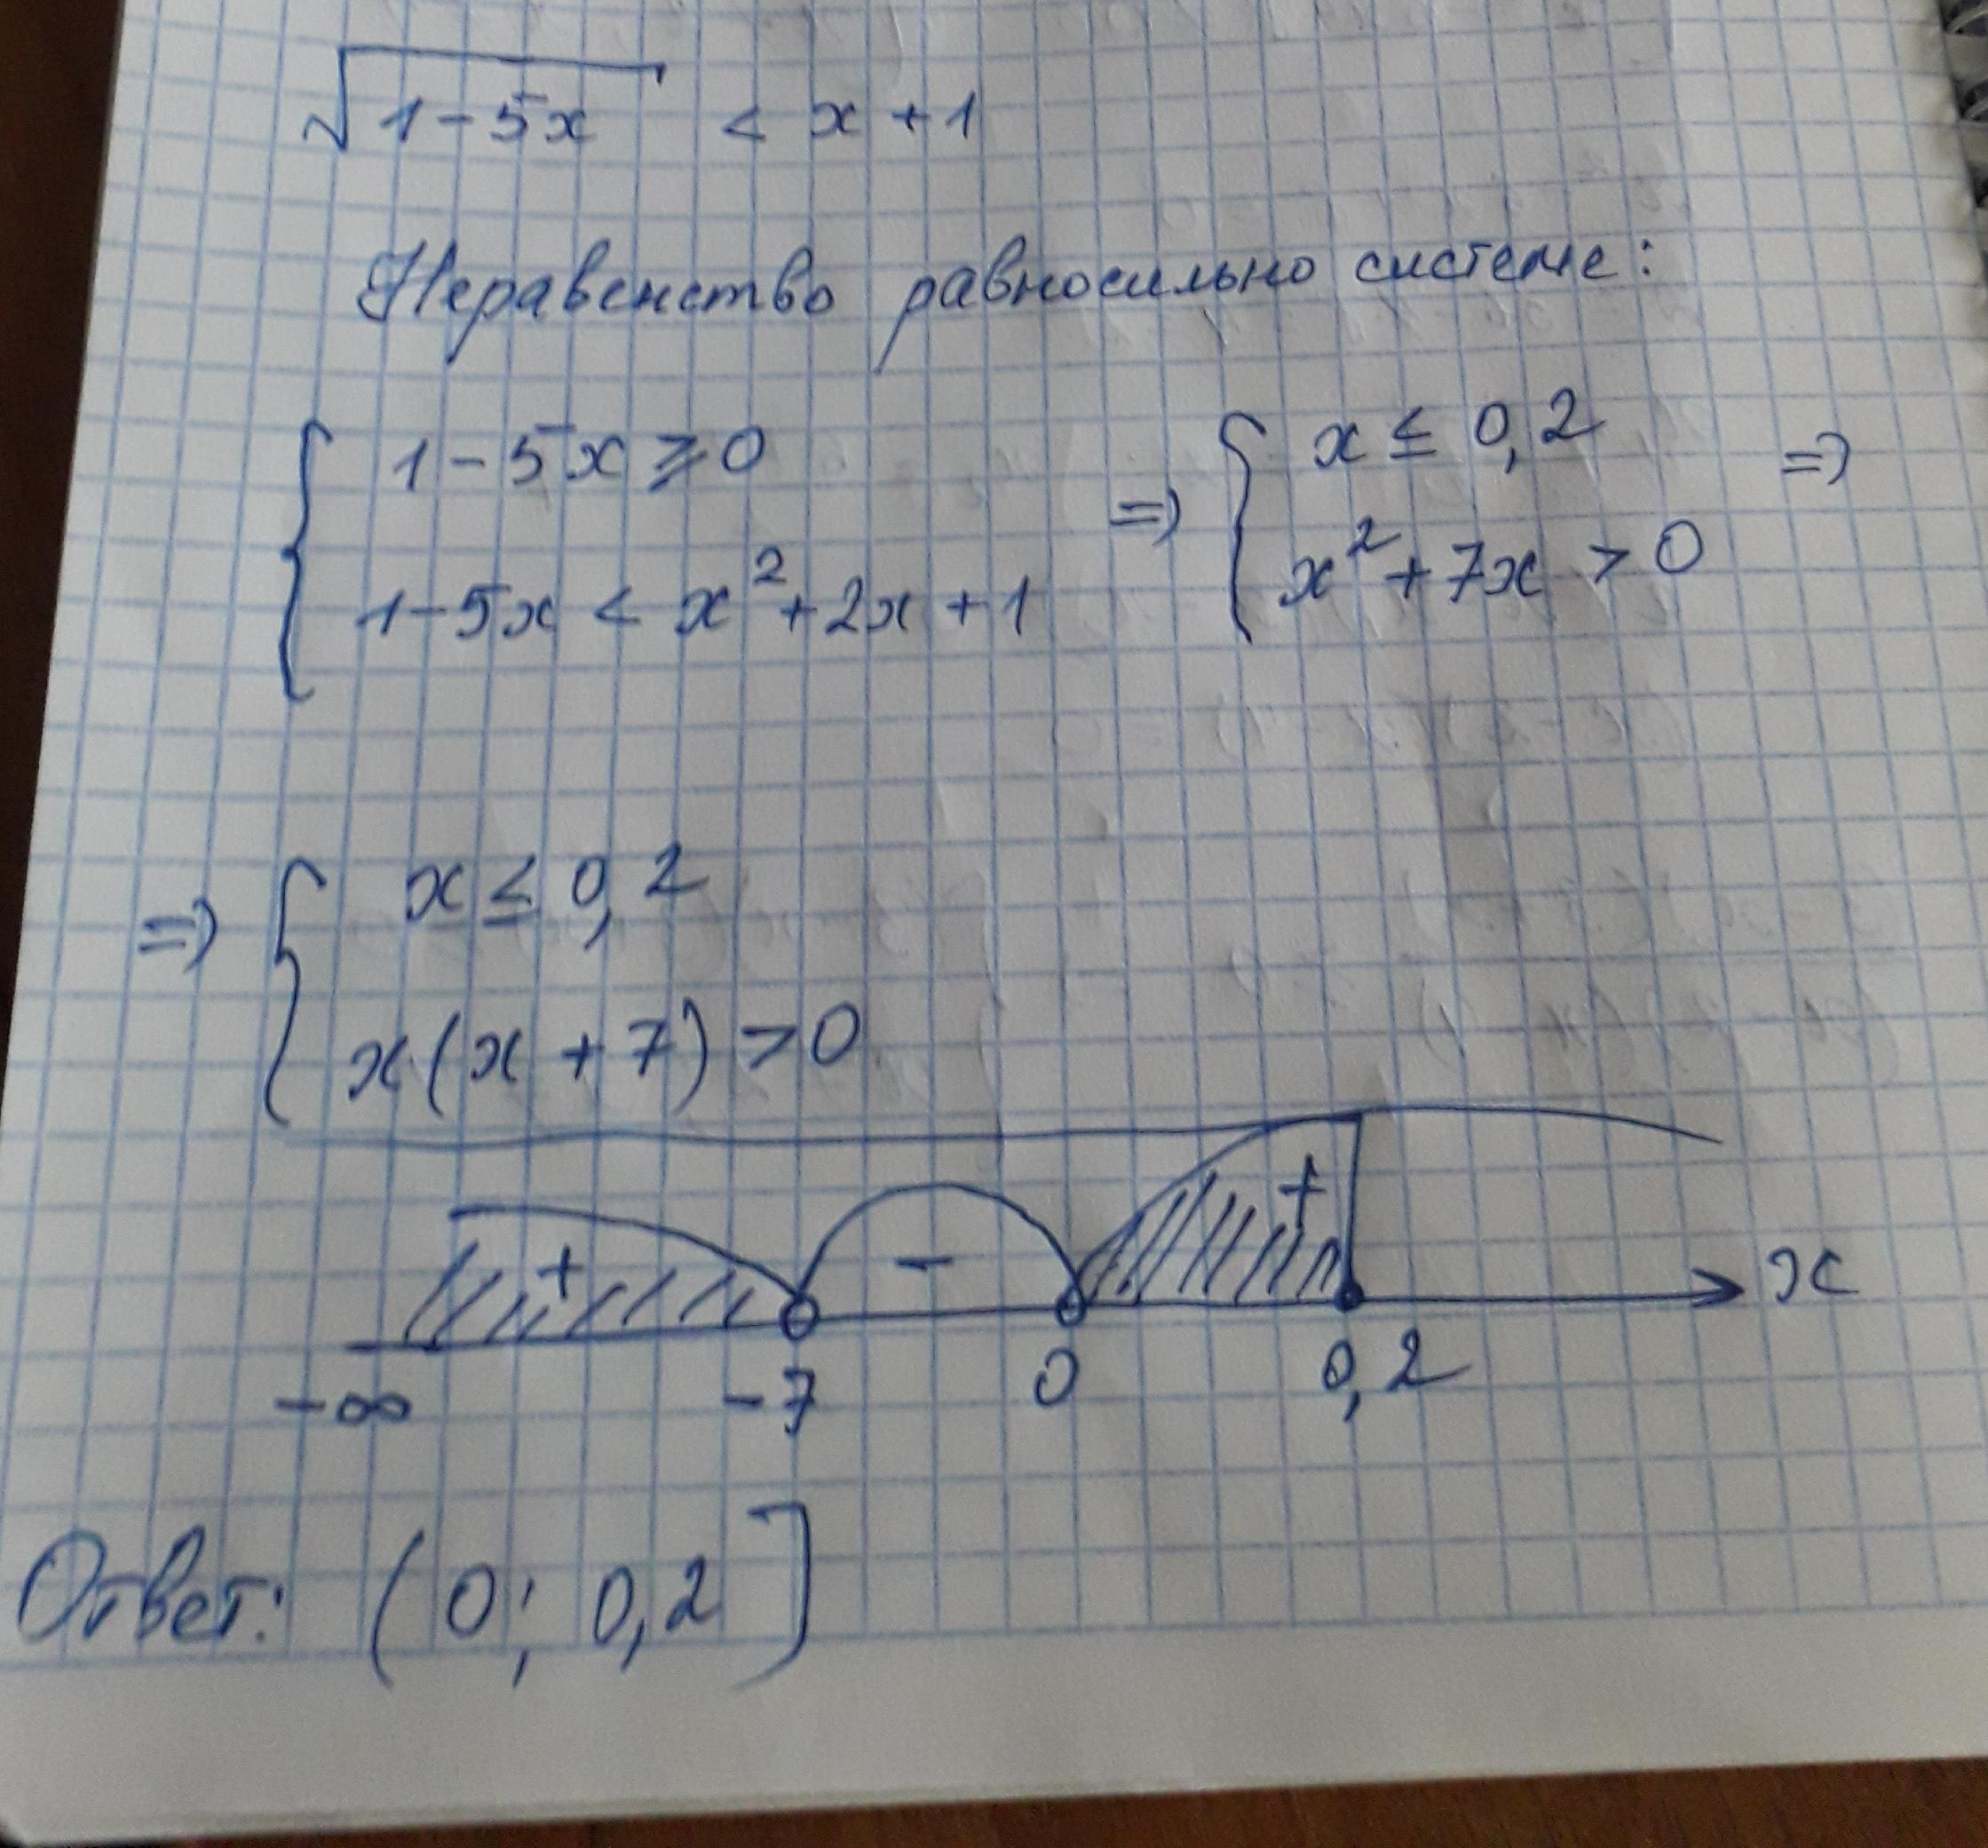 √(1-5x) < x + 1
Неравенство равносильно системе:
{ 1-5x ⩾ 0
1-5x < x² + 2x + 1
=> { x ≤ 0,2
x² + 7x > 0 =>
=> { x ≤ 0,2
x(x + 7) > 0
+ - + x
-∞ -7 0 0,2
Ответ: (0; 0,2]